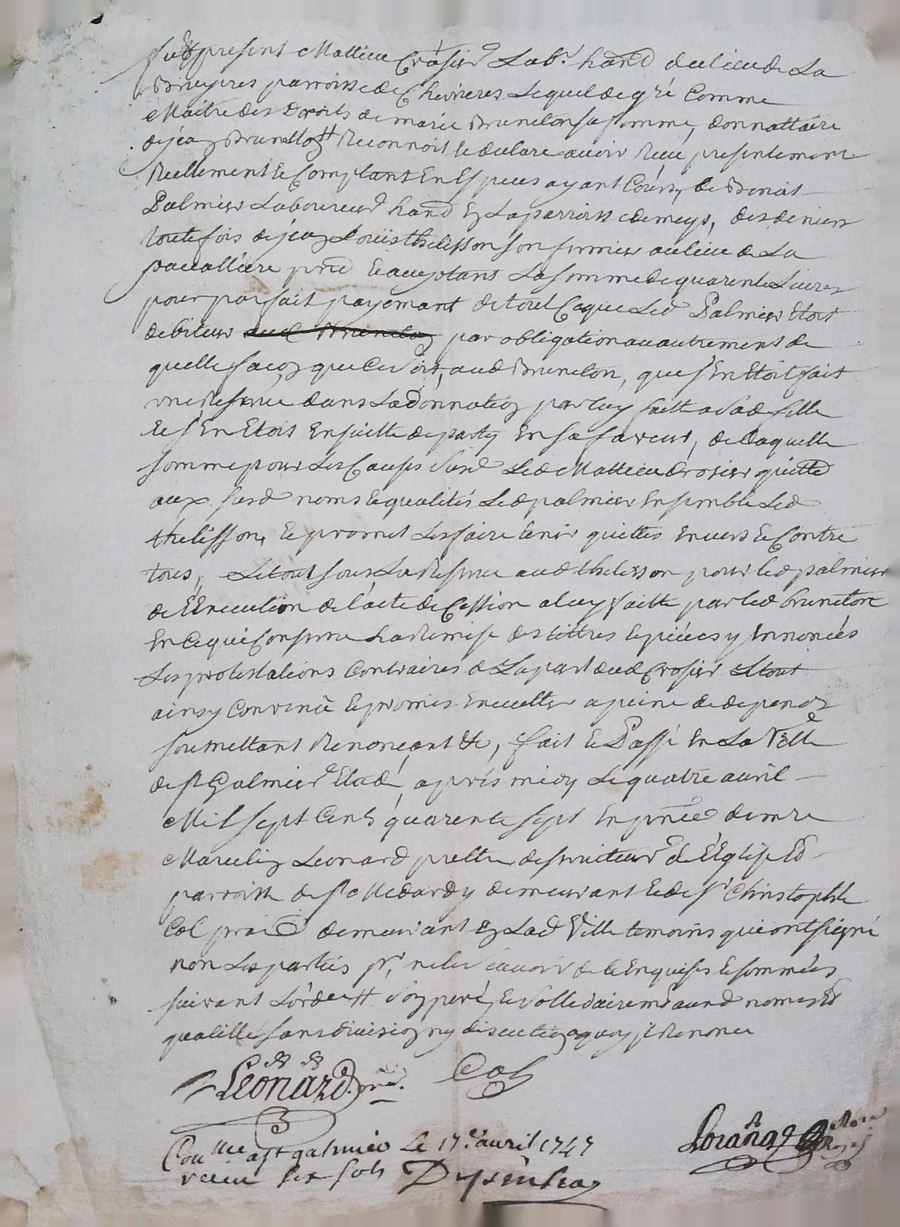 fut present Mattieu Crosier Lab.r hand du lieu de La
Bruyeres parroisse de Chevrieres Lequel de gré Comme
Maitre des Droits de marie Brunelon sa femme, donnattaire
de jéaz Brunelloz Reconnoit Et declare avoir Receu presentement
Reellement Et Comptant En Especes ayant Cours, de Benoit
Palmier Laboureur hand Ez La parroisse de meys, des deniers
toutefois de jéaz Louis thelisson son fermier au lieu de La
pacalliere Et acceptans La somme de quarente Livres
pour parfait payemant de tout Ceque Led Palmier Etoit
debiteur aud Bruneloz par obligation ou autrement de
quelle facoz que Ce soit, aud Brunelon, que s'En Etoit fait
une Reserve dans La donnatioz par luy faitte a sad fille
Et s'En Etois En suitte departy En sa faveur, de Laquelle
somme pour Les Causes susd Led Mattieu Crosier quitte
aux susd noms Et qualités Led palmier Ensemble Led
thelisson, Et promet Les faire tenir quittes Envers Et Contre
tous, Le tout sous La Reserve aud thelisson pour led palmier
de L'Execution de l'acte de Cession a luy faitte par led brunelon
En Ce qui Conserne La Remise des tittres Et pieces y Ennoncés
Les protestations Contraires de La part dud Crosier Le tout
ainsy Convenü Et promis Executter a peine de depends
soumettant Renonçant &c, fait Et Passé En La Ville
de St Galmier Etude, aprés midy Le quatre avril
Mil sept Cents quarente sept En pnce de mre
Marceliz Leonard prettre desserviteur de L'Eglise Ed
parroisse de St Medard y demeurant Et de Sr Christophle
Col demeurant Ez Lad Ville temoins qui ont signé
non Les parties pr ne le sçavoir de ce Enquises Et sommées
suivant L'ord Et sollidairemt aux d noms Et
qualitté sans divisioz ny discutioz a quoy jl Renonce
Léonard Col
Con.lle a St galmier Le 17.e avril 1747
receu six sols